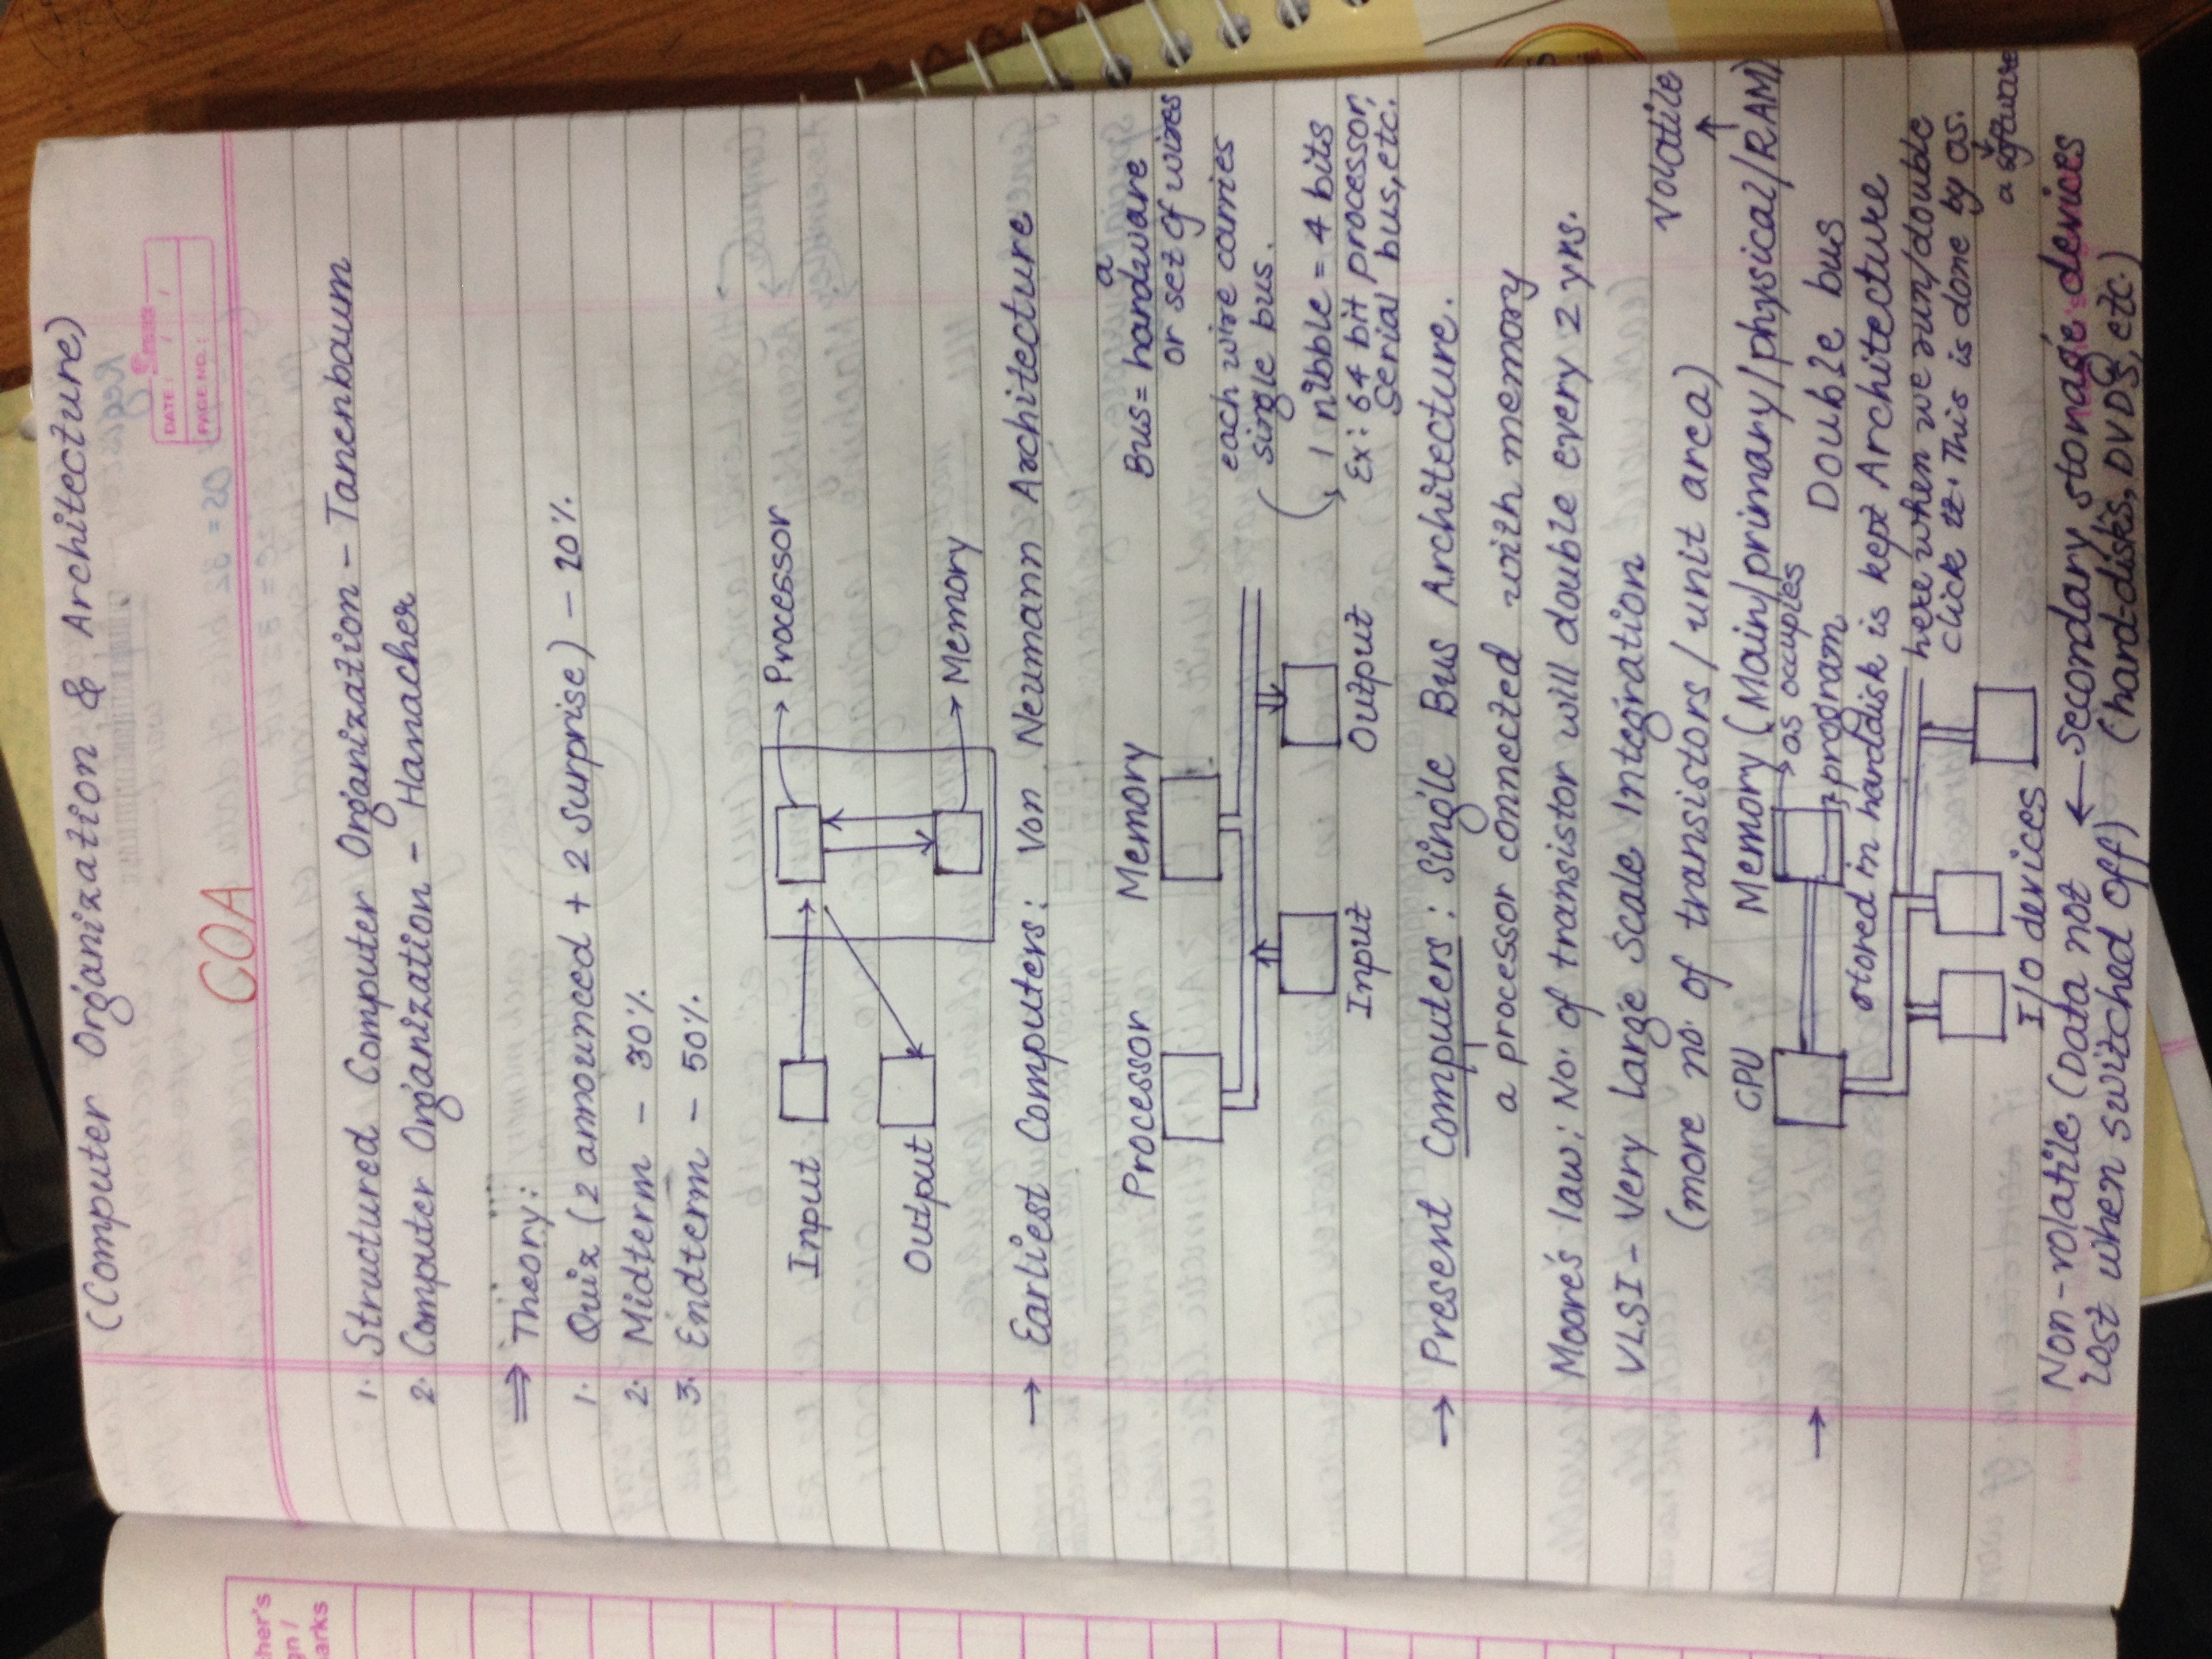 (Computer Organization & Architecture)
DATE: / /
PAGE NO.:
COA
1. Structured Computer Organization - Tanenbaum
2. Computer Organization - Hanacher
⇒ Theory:
1. Quiz (2 announced + 2 surprise) - 20%.
2. Midterm - 30%.
3. Endterm - 50%.
Input
→ Processor
Output
→ Memory
→ Earliest Computers: Von Neumann Architecture
Processor Memory
Input Output
a
Bus = hardware
or set of wires
each wire carries
single bus.
1 nibble = 4 bits
Ex: 64 bit processor,
serial bus, etc.
→ Present Computers: Single Bus Architecture.
a processor connected with memory
Moore's law: No. of transistor will double every 2 yrs.
VLSI - Very Large Scale Integration
(more no. of transistors / unit area)
Volatile
↑
CPU Memory (Main/primary/physical/RAM)
→ os occupies
→ program
Double bus
Architecture
stored in harddisk is kept
here when we run/double
click it. This is done by os.
↓
a software
I/O devices
Non-volatile (Data not ← secondary storage devices
lost when switched off) (hard-disks, DVDs, etc.)